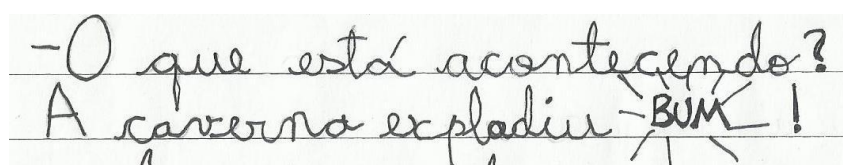 -O que está acontecendo?
A caverna explodiu BUM!